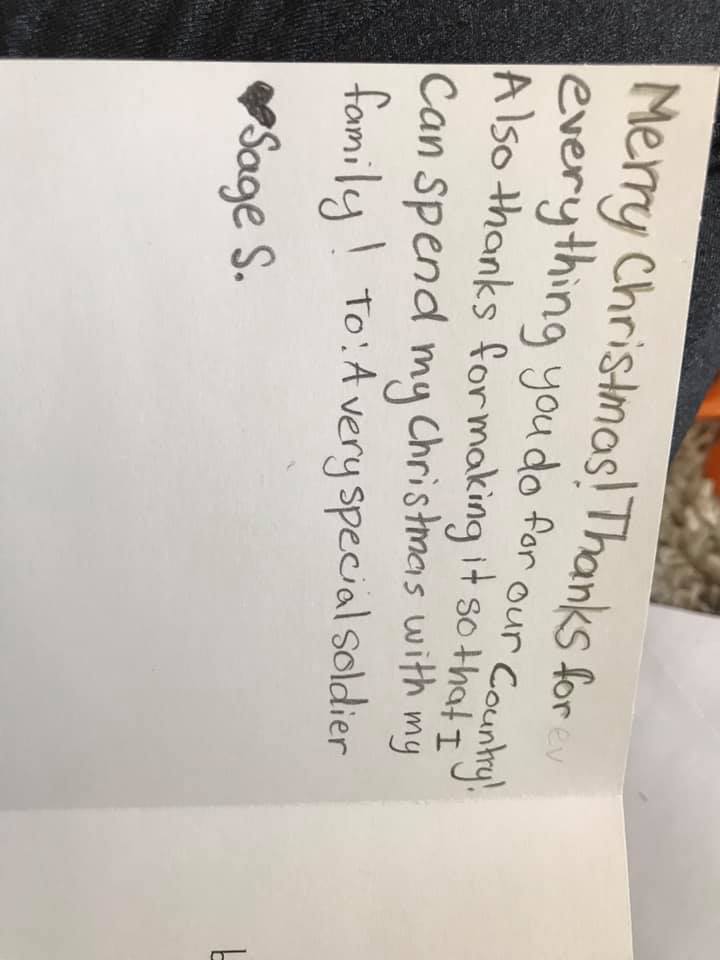 Merry Christmas! Thanks for ev
everything you do for our Country!
Also thanks for making it so that I
Can spend my Christmas with my
family! To: A very special soldier
♥Sage S.
b